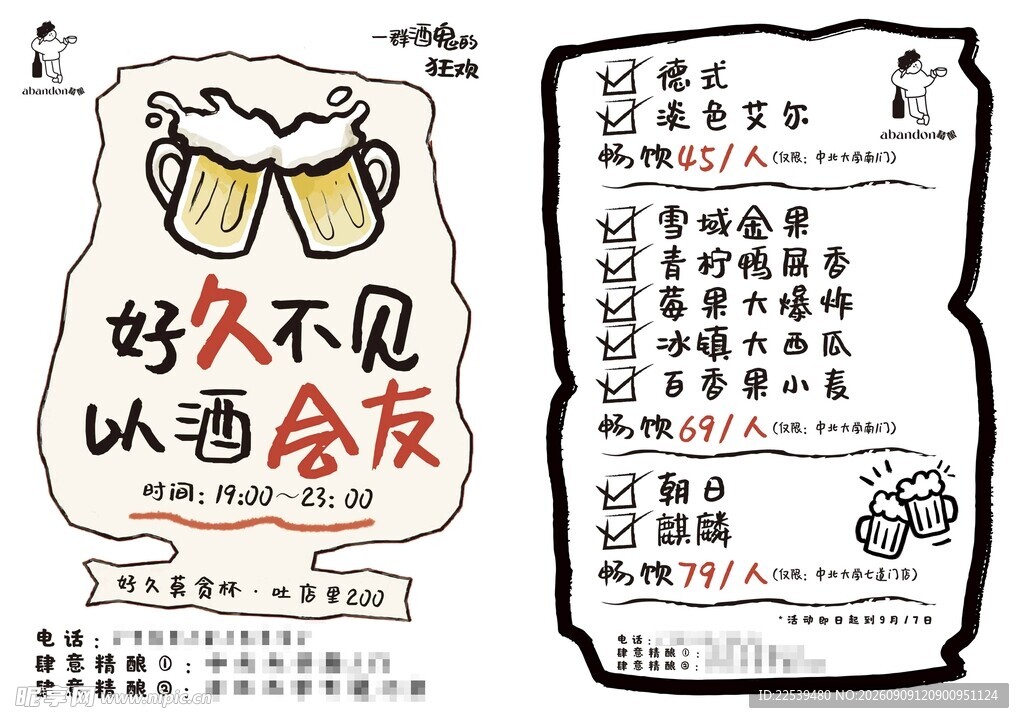 abandon
一群酒鬼的
狂欢
好久不见
以酒会友
时间：19:00～23：00
好久莫贪杯·吐店里200
电话：
肆意精酿①：
肆意精酿②：
德式
淡色艾尔
畅饮45/人(仅限：中北大学南门)
雪域金果
青柠鸭屎香
莓果大爆炸
冰镇大西瓜
百香果小麦
畅饮69/人(仅限：中北大学南门)
朝日
麒麟
畅饮79/人(仅限：中北大学七道门店)
*活动即日起到9月17日
abandon
电话：
肆意精酿①：
肆意精酿②：
昵享网 www.nipic.cn
ID:22539480 NO:20260909120900951124